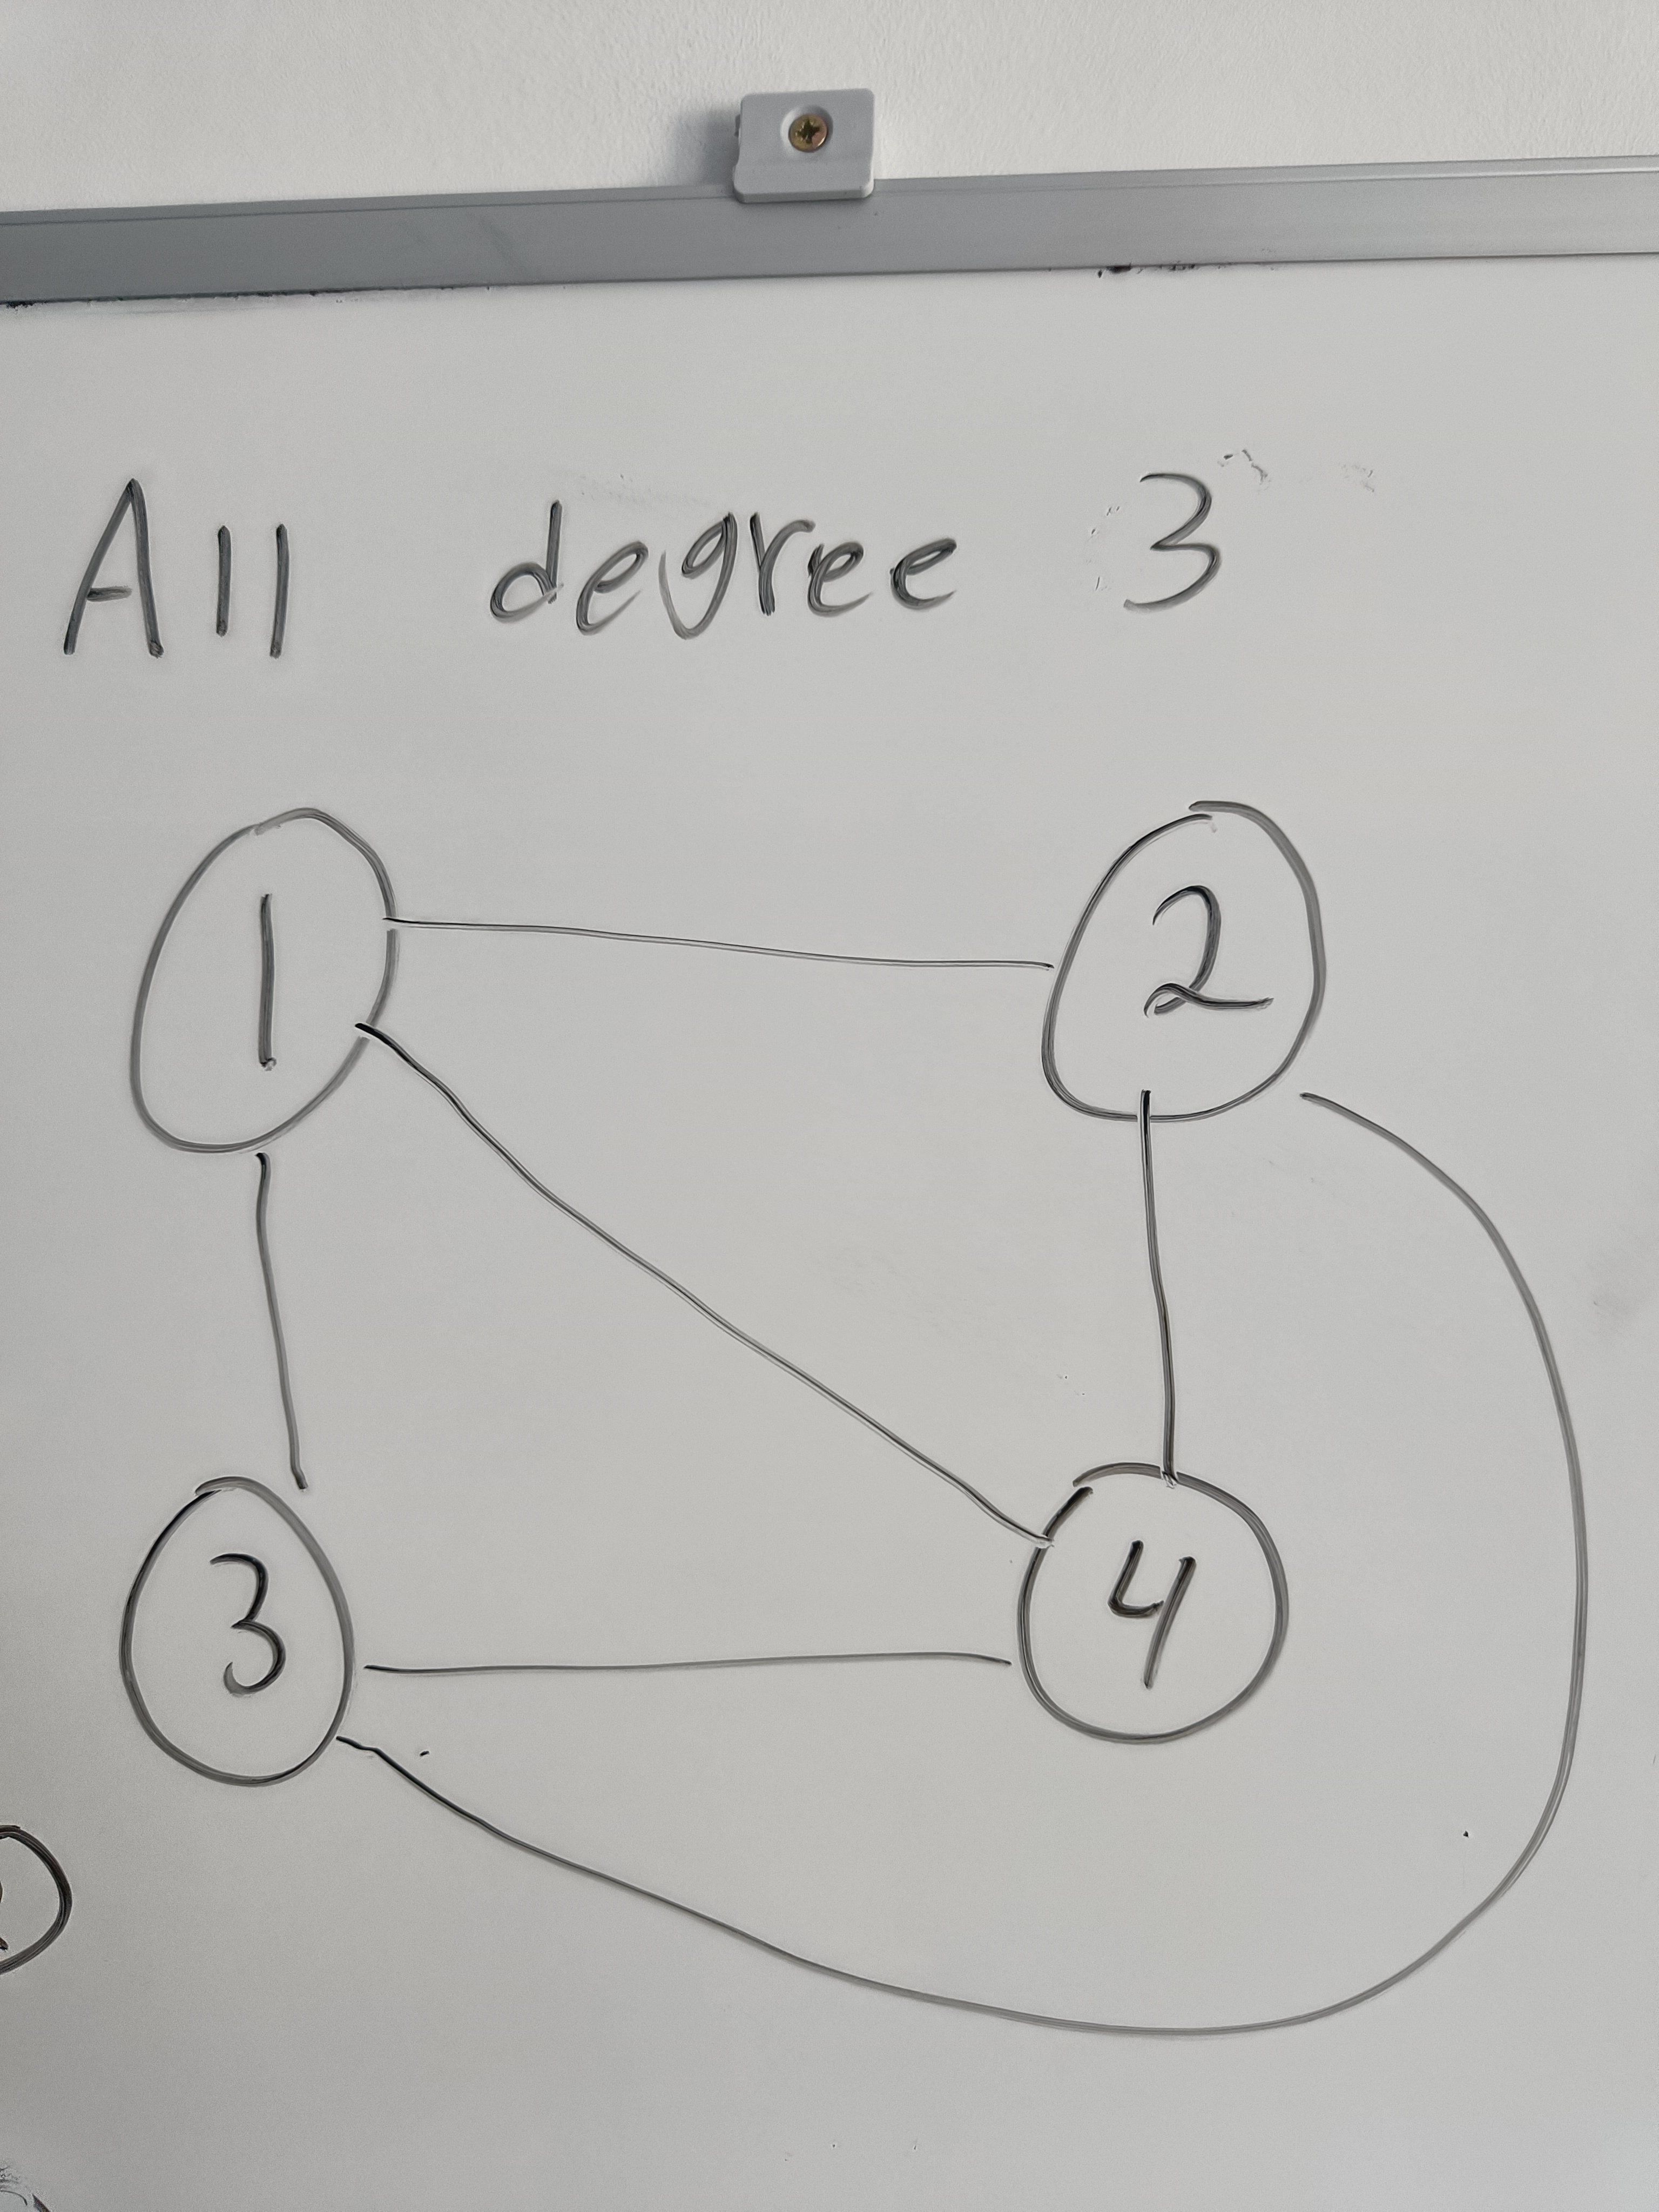 All degree 3
1 2
3 4